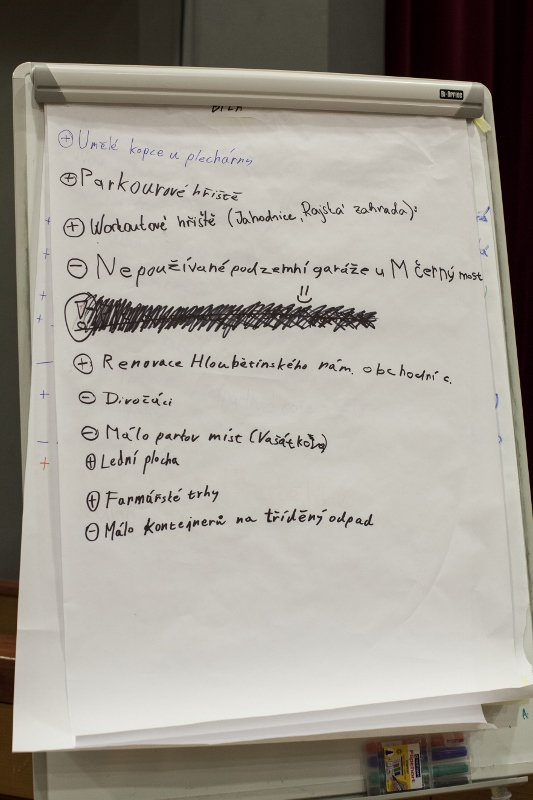 ⊕ Umělé kopce u plechárny
⊕ Parkourové hřiště
⊕ Workoutové hřiště (Jahodnice, Rajská zahrada):
⊖ Nepoužívané podzemní garáže u M černý most
⊕ Renovace Hloubětínského nám. obchodní c.
⊖ Divočáci
⊖ Málo parkov míst (Vašátkova)
⊕ Lední plocha
⊕ Farmářské trhy
⊖ Málo kontejnerů na tříděný odpad